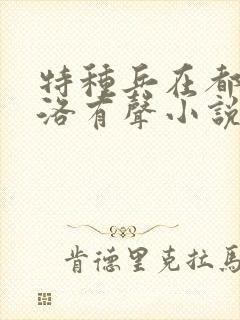 特種兵在都
洛有聲小說
肯德里克拉馬